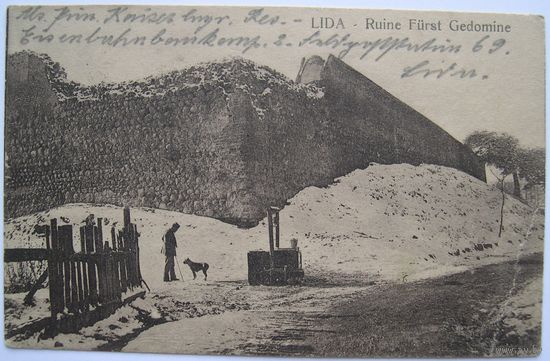 Abs. Pion. Kaiser Ingr. Res.-
Eisenbahnbaukomp. 2. Feldpoststation 69.
Lida.
LIDA - Ruine Fürst Gedomine